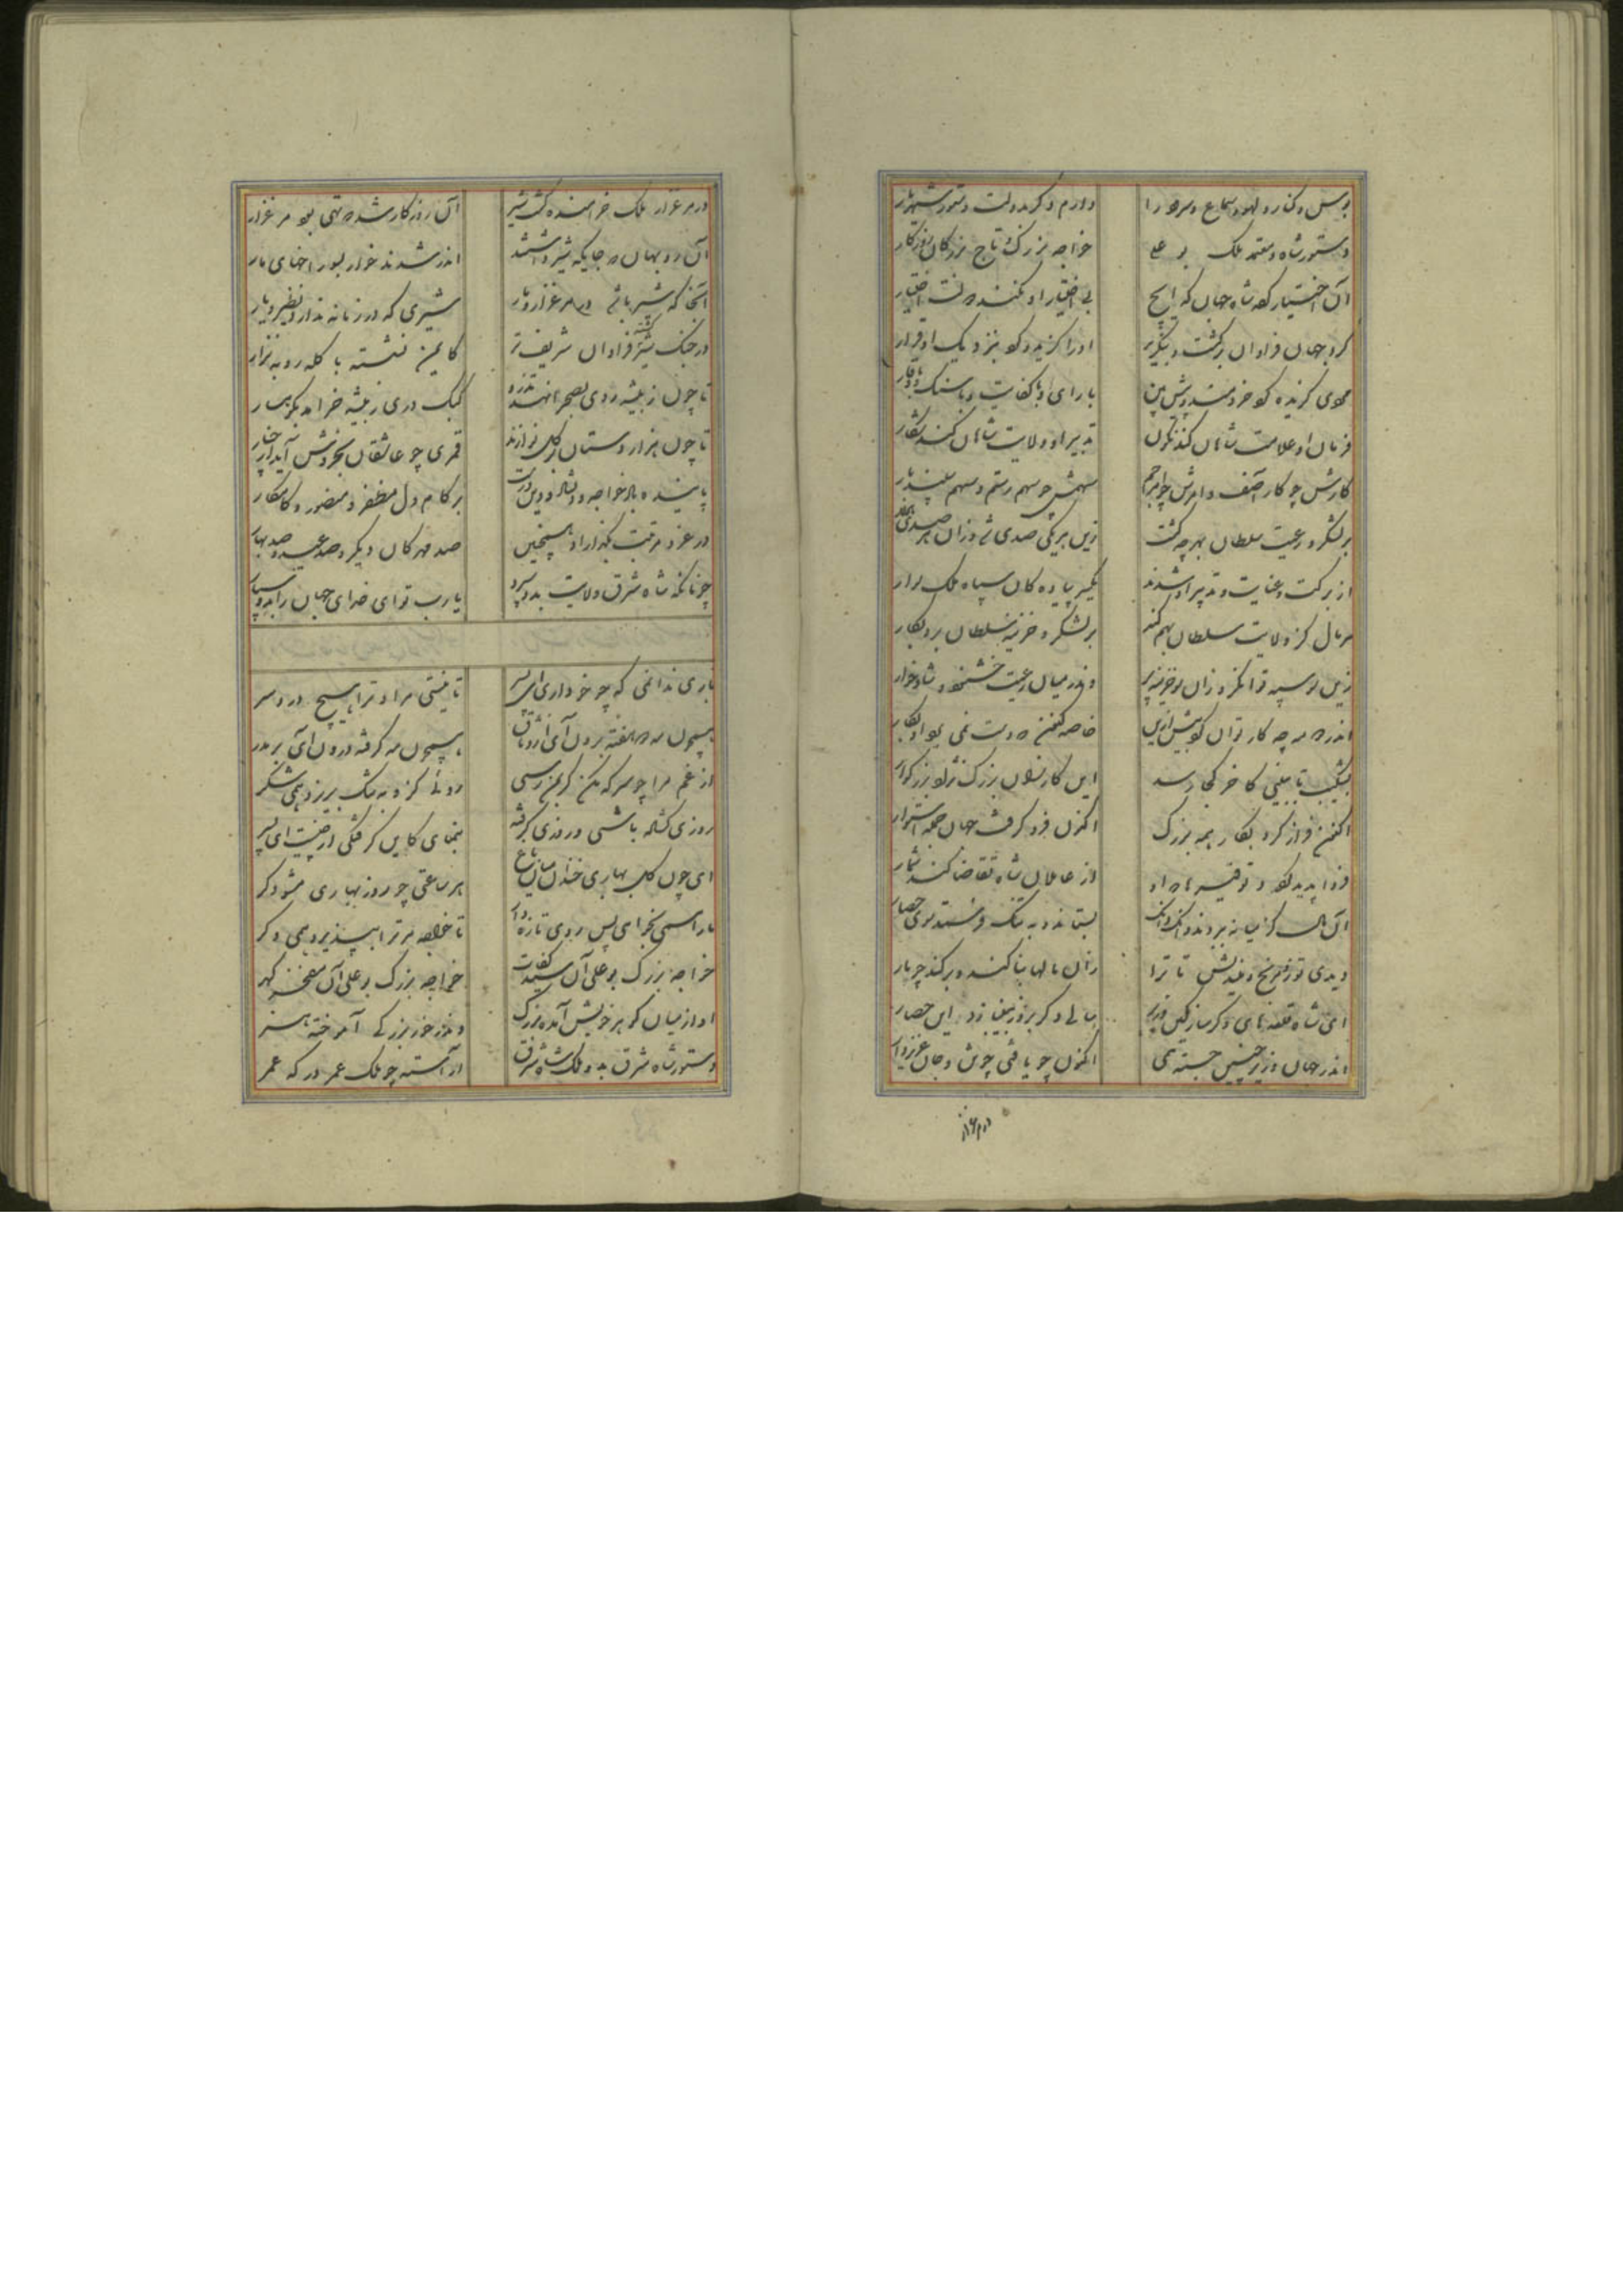 بوس و کنار و لهو و سماع و سرود را دارم دگر بدولت دستور شهریار
دستور شاه و معتمد ملک بو علی خواجه بزرگ و تاج بزرکان روزکار
آن اختیار کرده شاه جهان که ایچ بی اختیار او نکند دولت اختیار
کرد جهان فراوان برکشت و بنکرید او را کزید و کرد بنزدیک او قرار
مردی کزیده کرد خردمند و پیش بین با رای و با کفایت و با سنک و با وقار
فرمان او علامت شاهان کند نکون تدبیر او ولایت شاهان کند شکار
کارش چو کار آصف و امرش چو امر جم سهمش چو سهم رستم و سهم سفندیار
بر لشکر و رعیت سلطان بهر چه کشت زین هر یکی صدی شد و زان هر صدی هزار
از برکت و عنایت و تدبیر او شدند یکسر پیاده کان سپاه ملک سوار
هر مال کز ولایت سلطان بهم کند بر لشکر و خزینه سلطان برد بکار
زین سو سپه توانکر و زان سو خزینه پر وندر میان رعیت خشنود و شادخوار
اندر ده مه چه کار توان کرد بیش ازین خاصه کنون که دست نمی برد او بکار
بشکیب تا ببینی کاخر کجا رسد این کار نسلون بزرک نژاد بزرکوار
اکنون فراز کرد بکار همه بزرک اکنون فرو کرفت جهان جمله استوار
فردا پدید کرد و توفیرها او از عاملان شاه تقاضا کند شمار
آن مال کز میانه ببردند دانک دانک بستاند و به تنک فرستد سوی حصار
دیدی تو رفرنج و بیندیش تا ترا زان مالها بنا کند و بر کند چو پار
ای شاه قلعه های دکر ساز کین وزیر سالی دکر بزر بینبازد این حصار
اندر جهان وزیر چنین جسته همی اکنون چو یافتی چو تن و جان عزیز دار
در مرغزار
در مرغزار ملک خرامنده کشت شیر آن روزکار شد که تهی بود مرغزار
آن روبهان که جایکه شیر داشتند اندر شدند خوار بسوراخهای مار
آنجا که شیر باشد در مرغزار و بار شیری که در زمانه ندارد نظیر و یار
در جنک شیر کشته فراوان شریف تر کایمن نشسته با کله روبه نزار
تا چون ز بیشه روی بصحرا نهد تذرو کبک دری ز بیشه خرامد بکوهسار
تا چون هزار دستان بر کل نوازند قمری چو عاشقان بخروش آید از چنار
پاینده باد خواجه و دلشاد و تن درست بر کام دل مظفر و منصور و کامکار
در عز و مرتبت کذراناد همچنین صد مهرکان دیکر و صد عید و صد بهار
چونانکه شاه شرق ولایت بدو سپرد یارب تو ای خدای جهان را بدو سپار
یاری ندانمی که چو خو داری ای پسر تا نیستی مرا و ترا هیچ درد سر
همچون مه دو هفته برون آی از وثاق همچون مه کرفته درون آی بر بدر
از غم مرا چو سرکه مکن کز بمن رسی روئی کزو به تنک بریزد همی شکر
روزی کشاده باشی و روزی کرفته بنمای کاین کرفتکی از چیست ای پسر
ای چون کل بهاری خندان میان باغ هر ساعتی چو روز بهاری مشو دکر
ما را همی بخواهی پس روی تازه دار تا خواجه مر ترا بپذیرد همی دکر
خواجه بزرک بوعلی آن سید کفات خواجه بزرک بو علی آن مفخر کهر
او از میان کوهر خویش آمده بزرک وندر خور بزرکی آموخته هنر
دستور شاه شرق بدو ملک شاه شرق آراسته چو ملک عمر در که عمر